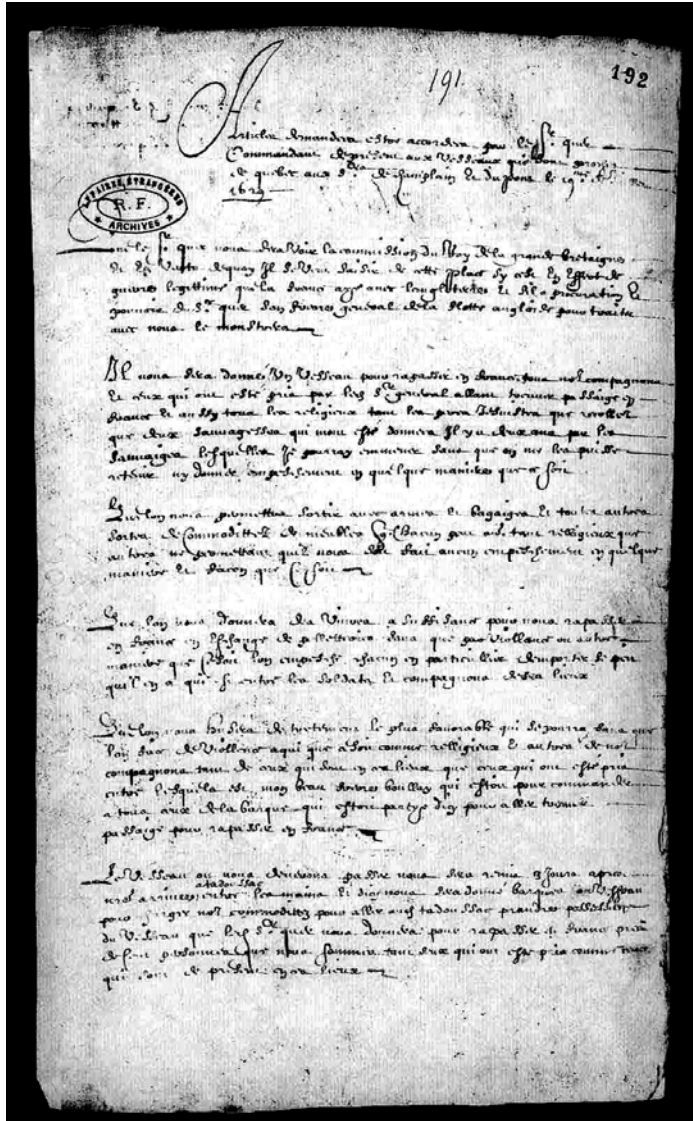 191
192
Articles demandez estre accordez par le Sr. quer
Commandant de present aux Vesseaux qui sont proches
de quebec aux Srs de Champlain et du pont le 19me
1629
AFFAIRES ÉTRANGÈRES
R. F.
ARCHIVES
que le Sr quer nous fera Voir la commission du Roy de la grande bretaigne
en Vertu de quoy Il se Veut saisir de cette place sy c'est En Effect de
guerre legittime que la france aye avec l'angleterre et sil a procuration et
pouvoir du Sr quer son frere general de la flotte angloise pour traiter
avec nous le monstrera
Il nous sera donné Un Vesseau pour rapasser en france tous nos compagnons
et ceux qui ont esté pris par led Sr general allant trouver passage en
france et aussy tous les religieux tant les peres Jesuistes que recollez
que deux sauvagesses qui m'ont esté données Il y a deux ans par les
sauvaiges lesquelles Je pourray emmener sans que on me les puisse
retenir ny donner empeschement en quelque maniere que ce soit
Que lon nous permettra sortir avec armes et bagaiges et toutes autres
sortes de Commoditez de meubles que chacun peut avoir tant religieux que
autres ne permettant qu'il nous soit fait aucun empeschement en quelque
maniere et facon que ce soit
Que lon nous donnera des Vivres a suffisance pour nous rapasser
en france en Eschange de pelletries sans que par Viollance ou autre
maniere que ce soit lon empesche chacun en particullier demporter le peu
qu'il en a qui est entre les soldatz et compagnons de ces lieux
Que lon nous usera de traitement le plus favorable qui se pourra sans que
lon face de Viollence a qui que ce soit comme religieux et autres de nos
compagnons tant de ceux qui sont en ces lieux que ceux qui ont esté pris
entre lesquels est mon beau frere boulley qui estoit pour commander
a tous ceux de la barque qui estoit partye d'icy pour aller trouver
passaige pour rapasser en france
Le Vesseau ou nous devrons passer nous sera remis 3 Jours apres
nostre arrivement a tadoussac entre les mains et d'icy nous sera donné barque ou Vesseau
pour charger nos commoditez pour aller aud tadoussac prandre possession
du Vesseau que led Sr quer nous donnera pour rapasser en france pres
de Cent personnes que nous sommes tant ceux qui ont esté pris comme ceux
qui sont de present en ces lieux